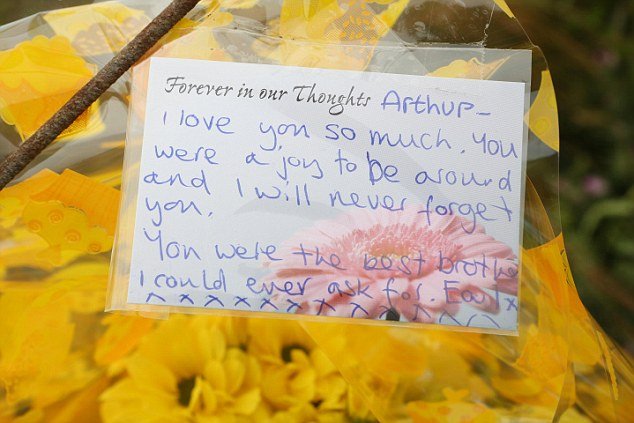 Forever in our Thoughts Arthur-
I love you so much. You
were a joy to be around
and I will never forget
you.
You were the best brothe
I could ever ask for. Earl x
x x x x x x x x x x x x x